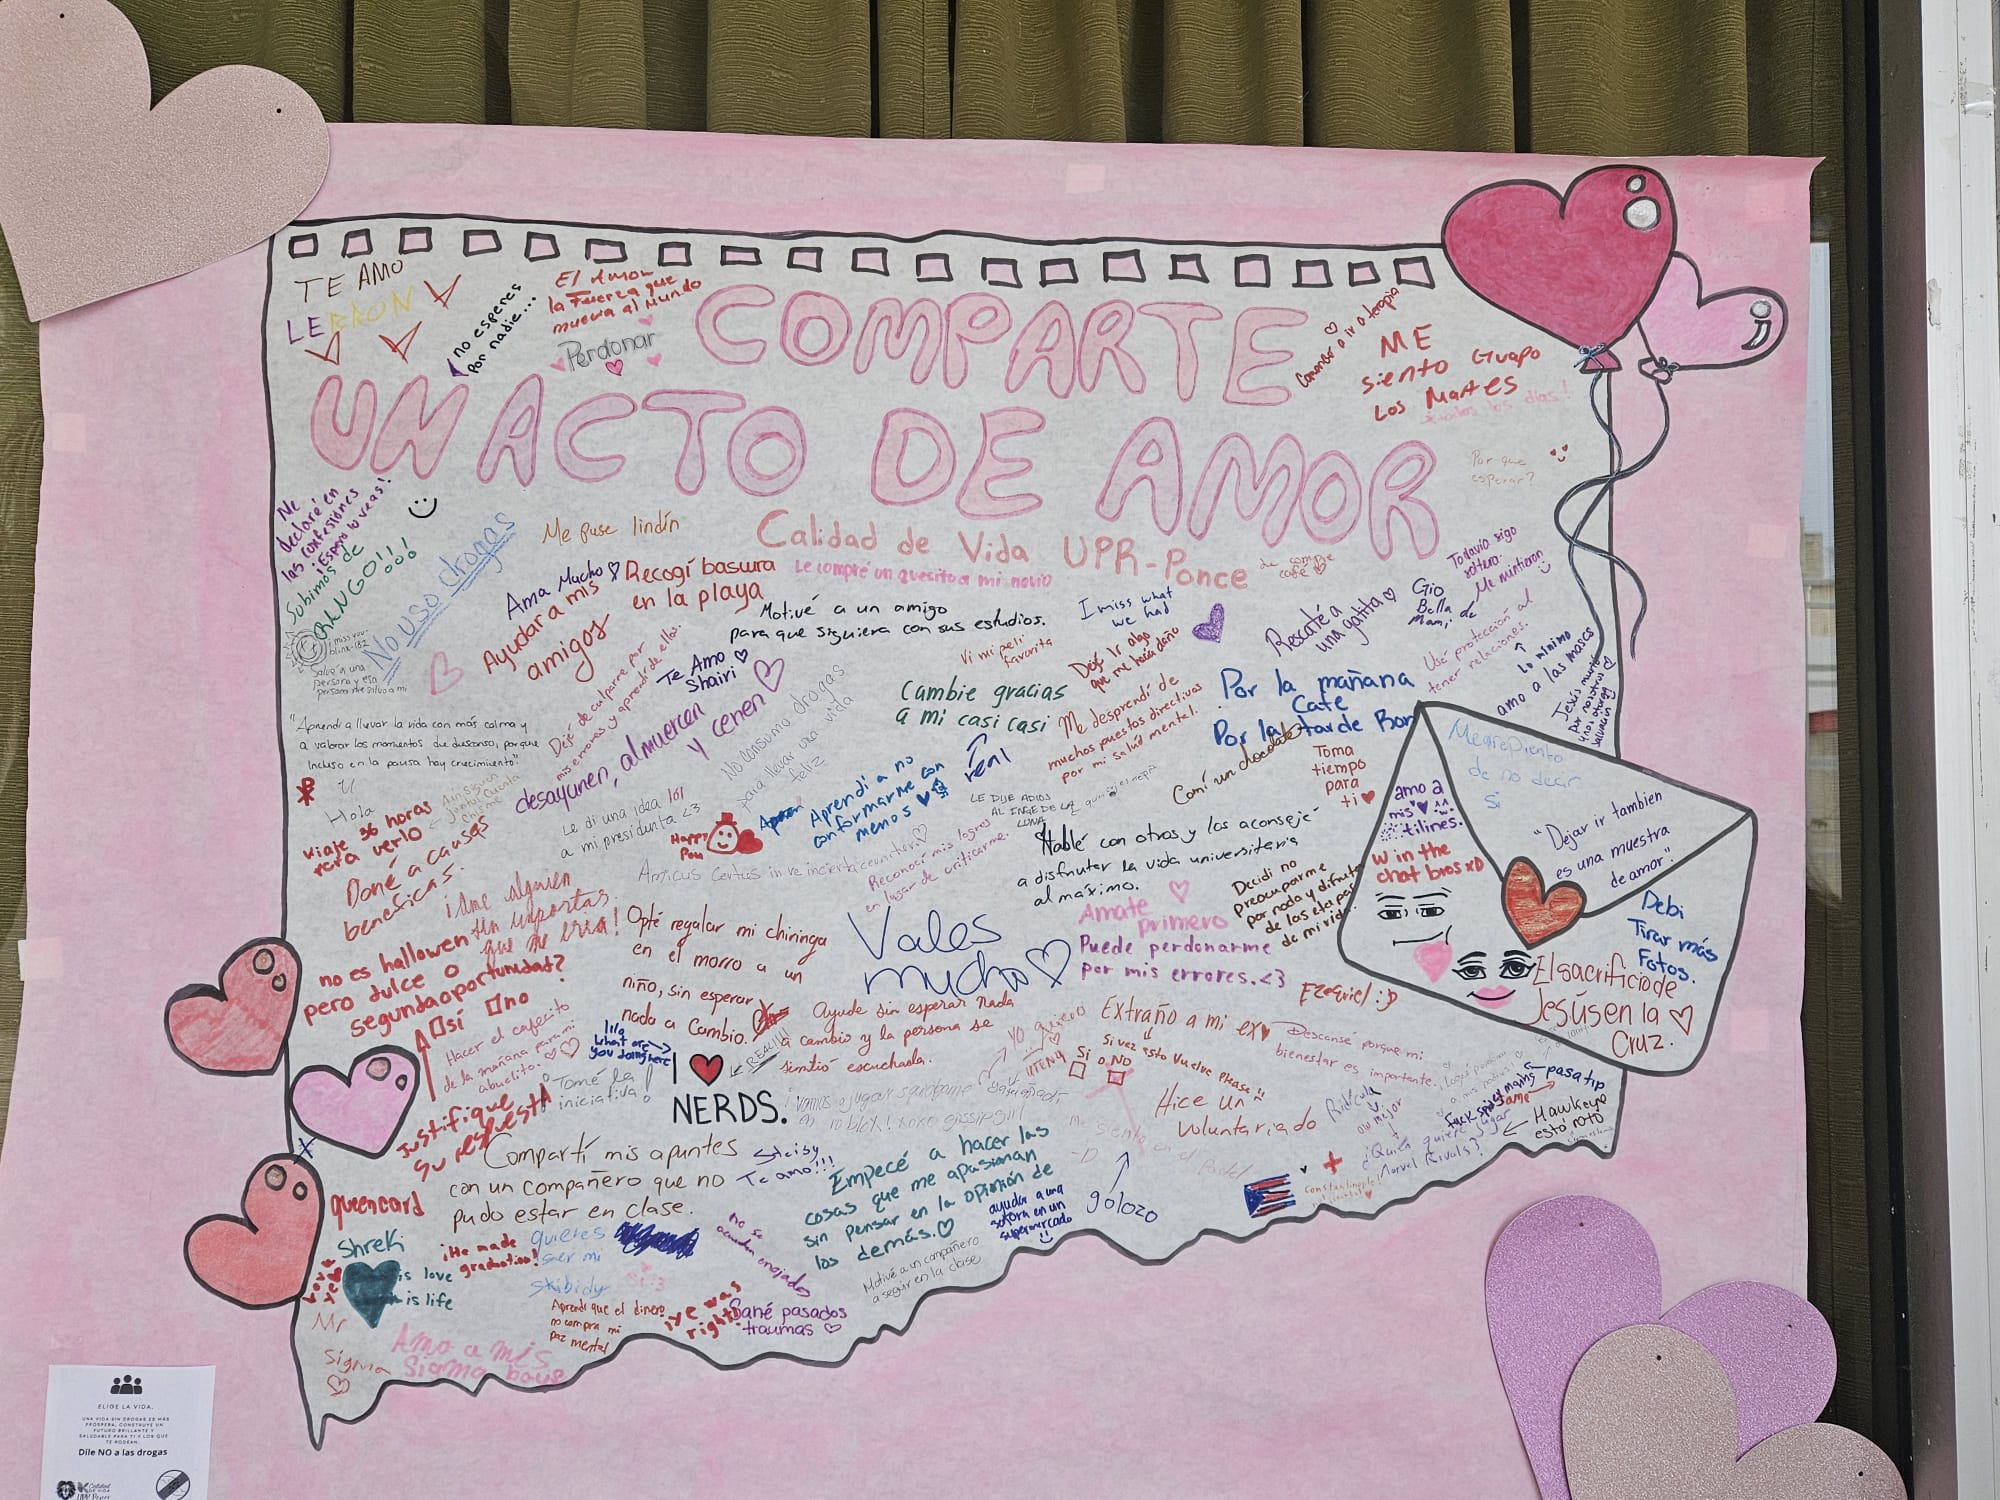 COMPARTE
UN ACTO DE AMOR
Calidad de Vida UPR-Ponce
TE AMO
LEBRON
no esperes
por nadie...
El Amor
la Fuerza que
mueva al Mundo
Perdonar
Comenzar a ir a terapia
ME
siento Guapo
Los Martes
todos los días!
Por que
esperar?
Me
declaré en
las confesiones
¡Espero lo veas!
Subimos de
RANGO!!!
No uso drogas
Me puse lindín
Ama Mucho
Ayudar a mis
amigos
Recogí basura
en la playa
Le compré un quesito a mi novio
Motivé a un amigo
para que siguiera con sus estudios.
I miss what
we had
Rescaté a
una gatita
Gio
Bella
Mami de
Todavía sigo
soltero.
Me mintieron
i miss you-
blink-182
Salvé a una
persona y esa
persona me salvó a mi
Dejé de culparme por
mis errores y aprendí de ellos.
Te Amo
Shairi
Vi mi peli
favorita
Dejé ir algo
que me hacía daño
Usé protección al
tener relaciones.
Lo mínimo
amo a las mases
Jesús murió
por nosotros
"Aprendí a llevar la vida con más calma y
a valorar los momentos de descanso, porque
incluso en la pausa hay crecimiento"
desayunen, almuercen
y cenen
No consumo drogas
para llevar una vida
feliz
Cambie gracias
a mi casi casi
real
Me desprendí de
muchos puestos directivos
por mi salud mental.
Por la mañana
Cafe
Por la tarde Bar
Comí un chocolate
Toma
tiempo
para
ti
Me arrepiento
de no decir
si
amo a
mis
tilines.
W in the
chat bros xD
"Dejar ir tambien
es una muestra
de amor."
Debi
Tirar más
Fotos.
El sacrificio de
Jesús en la
Cruz.
Hola
viaje 36 horas
para verlo
Doné a causas
beneficas.
Le di una idea lol
a mi presidenta <3
Happy
Pou
Aprendi a no
conformarme con
menos
LE DIJE ADIOS
AL INGE DE LA
LUNA
Amicus certus in re incierta cernitur
Reconocer mis logros
en lugar de criticarme.
Hablé con otros y los aconsejé
a disfrutar la vida universitaria
al máximo.
Decidí no
preocuparme
por nada y disfrutar
de las etapas
de mi vida.
no es hallowen
pero dulce o
segunda oportunidad?
sí no
Justifique
su respuesta
Opté regalar mi chiringa
en el morro a un
niño, sin esperar
nada a cambio.
Vales
mucho
Amate
primero
Puede perdonarme
por mis errores. <3
Ezequiel :)
Hacer el cafecito
de la mañana para mi
abuelito.
lila
what are
you doing here
Tomé la
iniciativa!
I
NERDS.
REAL!!!
Ayude sin esperar nada
a cambio y la persona se
sintió escuchada.
Yo quiero
Extraño a mi ex
Si ves esto Vuelve Please
Si o No
Descansé porque mi
bienestar es importante.
Hice un
voluntariado
Ridícula
¿Quién quiere jugar
Marvel Rivals?
pasa tip
Hawkeye
está roto
Compartí mis apuntes
con un compañero que no
pudo estar en clase.
Te amo!!!
Empecé a hacer las
cosas que me apasionan
sin pensar en la opinión de
los demás.
ayudar a una
señora en un
supermercado
golozo
queencard
Shrek
is love
is life
¡He made
graduation!
quieres
ser mi
skibidy
no se
acuesten enojados
Motivé a un compañero
a seguir en la clase
Aprendí que el dinero
no compra mi
paz mental
¡Ye was
right!
Sané pasados
traumas
Mr
Sigma
Amo a mis
Sigma boys
ELIGE LA VIDA.
UNA VIDA SIN DROGAS ES MÁS
PRÓSPERA, CONSTRUYE UN
FUTURO BRILLANTE Y
SALUDABLE PARA TI Y LOS QUE
TE RODEAN.
Dile NO a las drogas
Calidad
DE VIDA
UPR Ponce